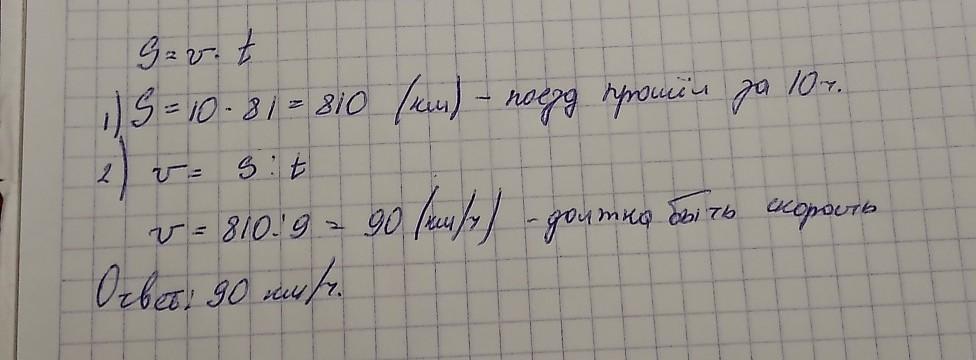 S = v · t
1) S = 10 · 81 = 810 (км) - поезд прошёл за 10 ч.
2) v = S : t
v = 810 : 9 = 90 (км/ч) - должна быть скорость
Ответ: 90 км/ч.